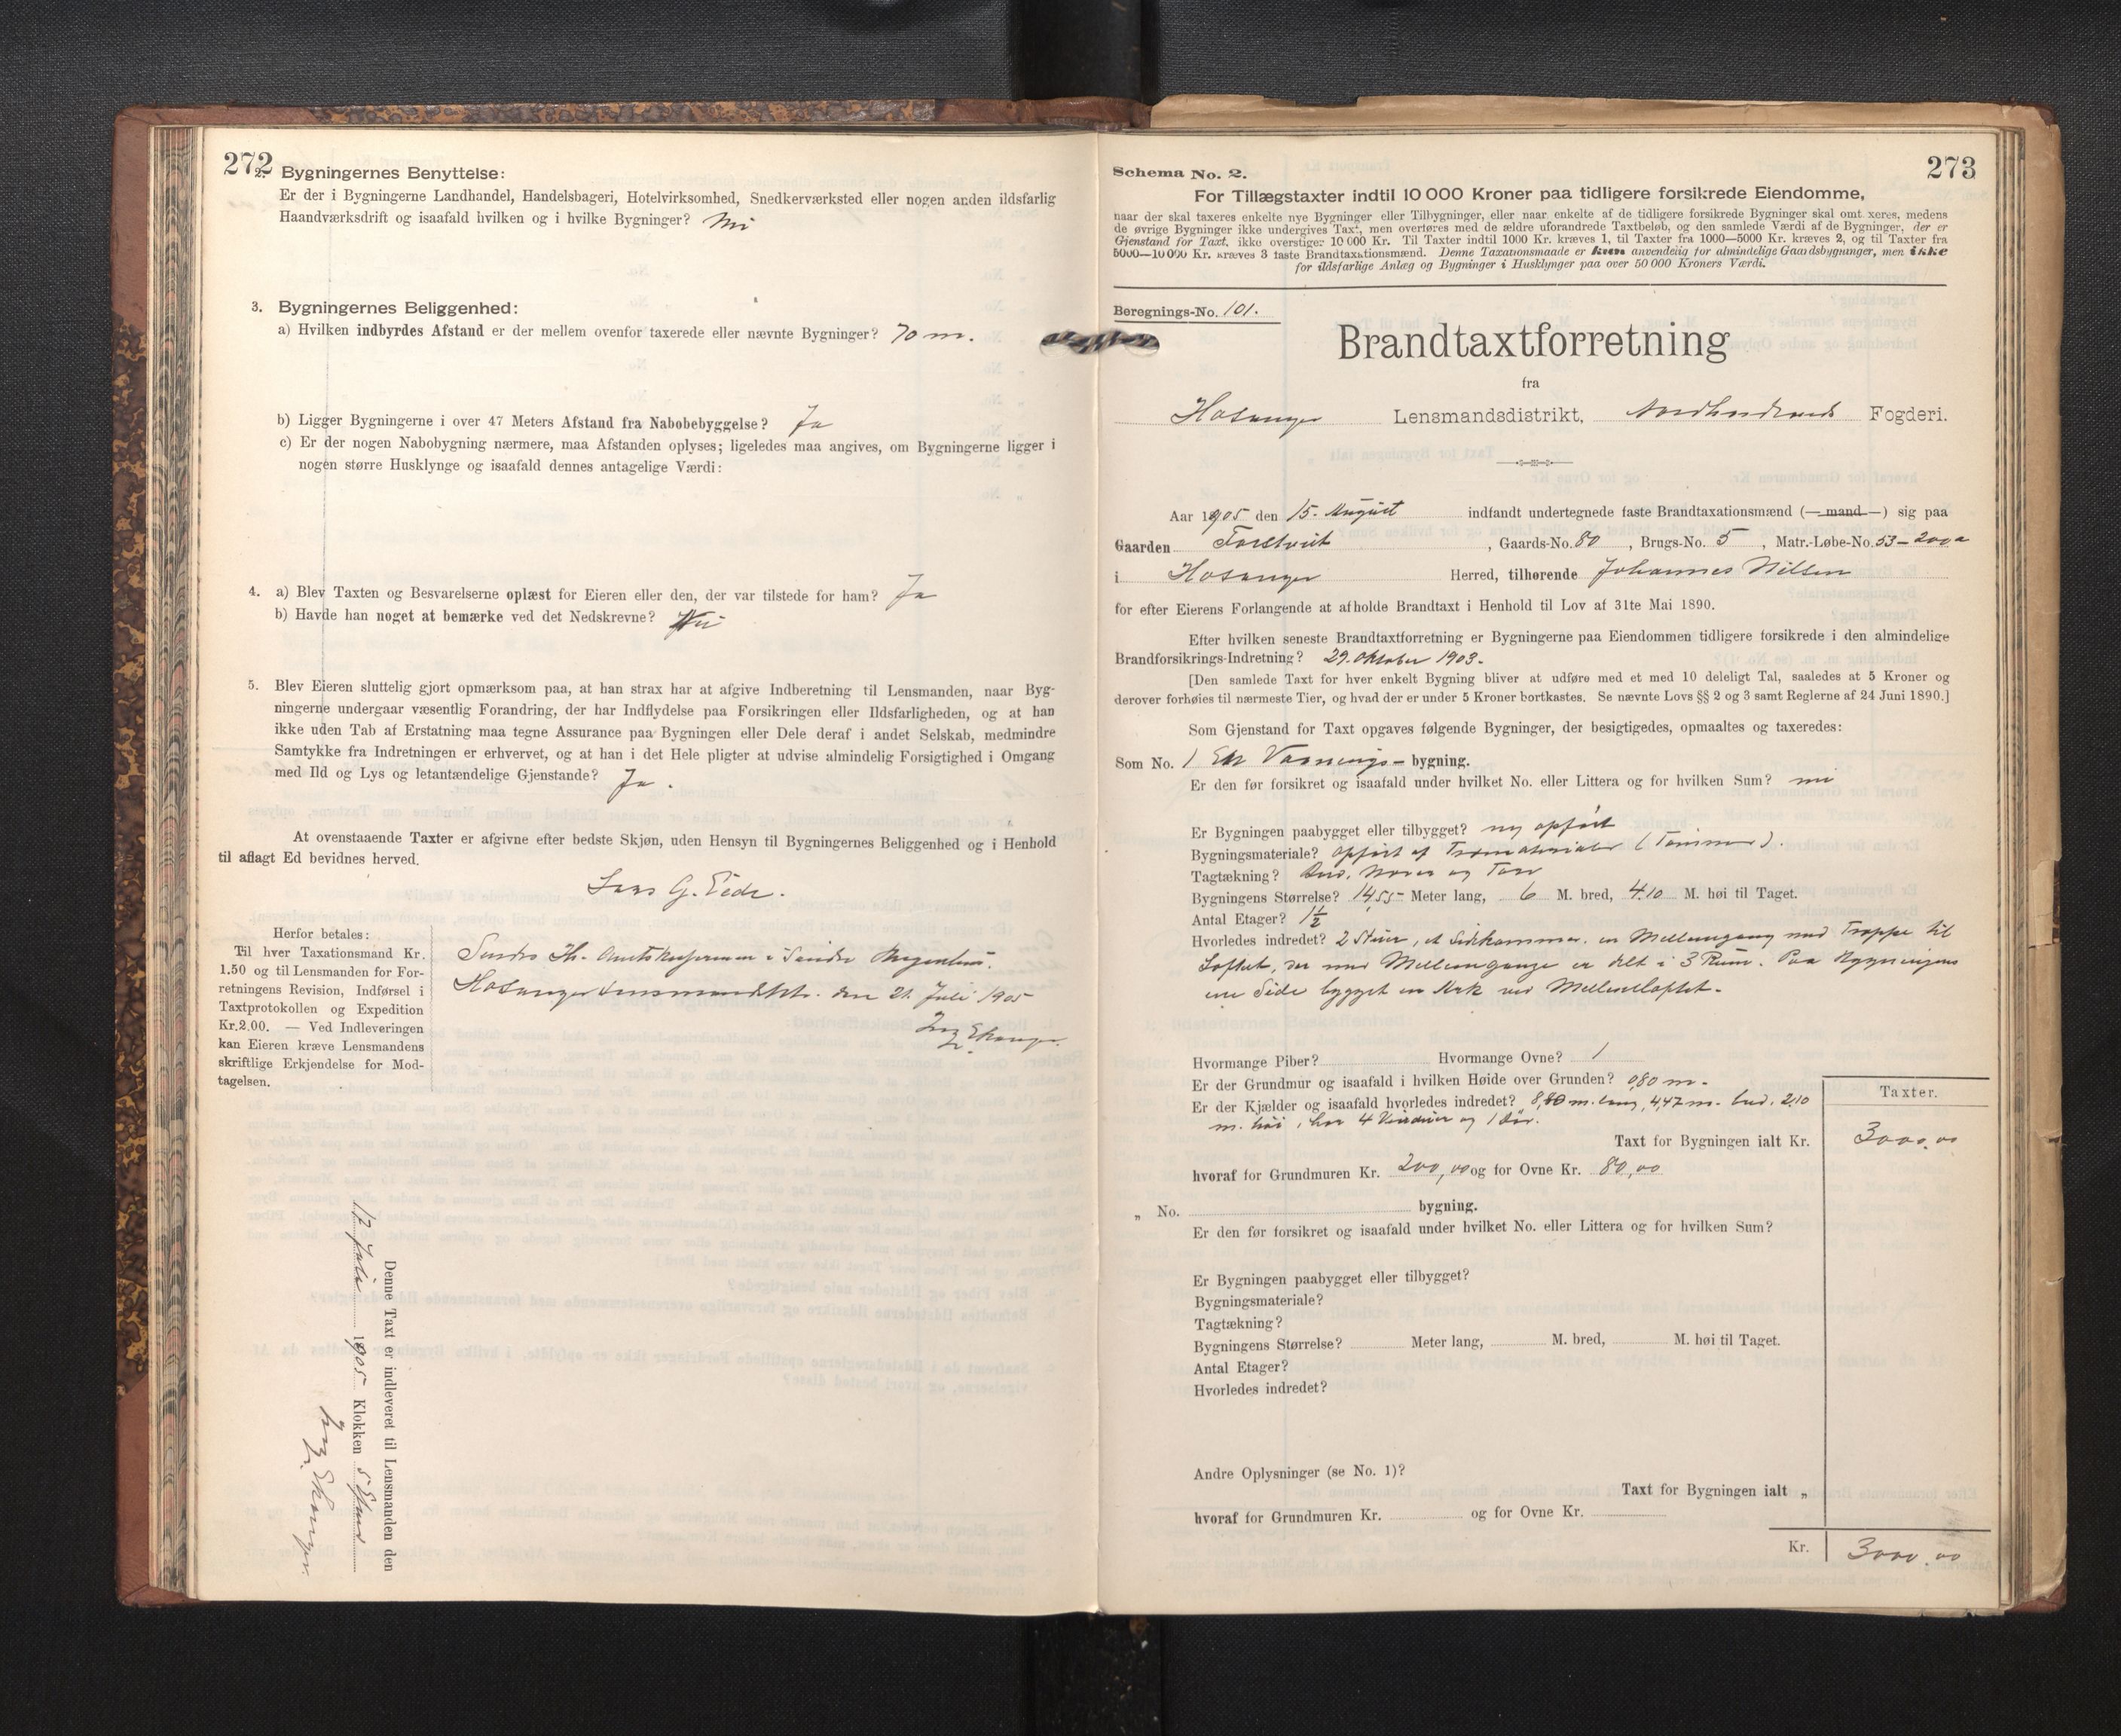 272
2. Bygningernes Benyttelse:
Er der i Bygningerne Landhandel, Handelsbageri, Hotelvirksomhed, Snedkerværksted eller nogen anden ildsfarlig
Haandværksdrift og isaafald hvilken og i hvilke Bygninger? Nei
3. Bygningernes Beliggenhed:
a) Hvilken indbyrdes Afstand er der mellem ovenfor taxerede eller nævnte Bygninger? 70 m.
b) Ligger Bygningerne i over 47 Meters Afstand fra Nabobebyggelse? Ja
c) Er der nogen Nabobygning nærmere, maa Afstanden oplyses; ligeledes maa angives, om Bygningerne ligger i
nogen større Husklynge og isaafald dennes antagelige Værdi:
4. a) Blev Taxten og Besvarelserne oplæst for Eieren eller den, der var tilstede for ham? Ja
b) Havde han noget at bemærke ved det Nedskrevne? Nei
5. Blev Eieren sluttelig gjort opmærksom paa, at han strax har at afgive Indberetning til Lensmanden, naar Byg-
ningerne undergaar væsentlig Forandring, der har Indflydelse paa Forsikringen eller Ildsfarligheden, og at han
ikke uden Tab af Erstatning maa tegne Assurance paa Bygningen eller Dele deraf i andet Selskab, medmindre
Samtykke fra Indretningen er erhvervet, og at han i det Hele pligter at udvise almindelig Forsigtighed i Omgang
med Ild og Lys og letantændelige Gjenstande? Ja.
At ovenstaaende Taxter er afgivne efter bedste Skjøn, uden Hensyn til Bygningernes Beliggenhed og i Henhold
til aflagt Ed bevidnes herved.
Lars G. Eide.
Herfor betales:
Til hver Taxationsmand Kr.
1.50 og til Lensmanden for For-
retningens Revision, Indførsel i
Taxtprotokollen og Expedition
Kr. 2.00. — Ved Indleveringen
kan Eieren kræve Lensmandens
skriftlige Erkjendelse for Mod-
tagelsen.
Sendes Hr. Amtskasserer i Søndre Bergenhus.
Hosanger Lensmandsktr. den 21. Juli 1905
Ekanger
Denne Taxt er indleveret til Lensmanden den
17 Juli 1905 Klokken 5 Eftmd
Ekanger
273
Schema No. 2.
For Tillægstaxter indtil 10 000 Kroner paa tidligere forsikrede Eiendomme,
naar der skal taxeres enkelte nye Bygninger eller Tilbygninger, eller naar enkelte af de tidligere forsikrede Bygninger skal omt xeres, medens
de øvrige Bygninger ikke undergives Taxt, men overføres med de ældre uforandrede Taxtbeløb, og den samlede Værdi af de Bygninger, der er
Gjenstand for Taxt, ikke overstiger 10 000 Kr. Til Taxter indtil 1000 Kr. kræves 1, til Taxter fra 1000—5000 Kr. kræves 2, og til Taxter fra
5000—10 000 Kr. kræves 3 faste Brandtaxationsmænd. Denne Taxationsmaade er kun anvendelig for almindelige Gaardsbygninger, men ikke
for ildsfarlige Anlæg og Bygninger i Husklynger paa over 50 000 Kroners Værdi.
Beregnings-No. 101.
Brandtaxtforretning
fra
Hosanger Lensmandsdistrikt, Nordhordlands Fogderi.
Aar 1905 den 15. August indfandt undertegnede faste Brandtaxationsmænd (—mand—) sig paa
Gaarden Forstveit, Gaards-No. 80, Brugs-No. 5, Matr.-Løbe-No. 53-200 a
i Hosanger Herred, tilhørende Johannes Nilsen
for efter Eierens Forlangende at afholde Brandtaxt i Henhold til Lov af 31te Mai 1890.
Efter hvilken seneste Brandtaxtforretning er Bygningerne paa Eiendommen tidligere forsikrede i den almindelige
Brandforsikrings-Indretning? 29. Oktober 1903.
[Den samlede Taxt for hver enkelt Bygning bliver at udføre med et med 10 deleligt Tal, saaledes at 5 Kroner og
derover forhøies til nærmeste Tier, og hvad der er under 5 Kroner bortkastes. Se nævnte Lovs §§ 2 og 3 samt Reglerne af 24 Juni 1890.]
Som Gjenstand for Taxt opgaves følgende Bygninger, der besigtigedes, opmaaltes og taxeredes:
Som No. 1 En Vaanings- bygning.
Er den før forsikret og isaafald under hvilket No. eller Littera og for hvilken Sum? nei
Er Bygningen paabygget eller tilbygget? ny opført
Bygningsmateriale? opført af Træmaterialer (Tømmer).
Tagtækning? Bord, Næver og Torv
Bygningens Størrelse? 14,55 Meter lang, 6 M. bred, 4.10 M. høi til Taget.
Antal Etager? 1½
Hvorledes indredet? 2 Stuer, et Sidekammer, en Mellemgang med Trappe til
Loftet, der med Mellemgange er delt i 3 Rum. Paa Bygningens
ene Side bygget en Ark ved Mellemloftet.
Hvormange Piber? Hvormange Ovne? 1
Er der Grundmur og isaafald i hvilken Høide over Grunden? 0,80 m.
Er der Kjælder og isaafald hvorledes indredet? 8,80 m. lang, 4,47 m. bred, 2,10
m. høi, har 4 Vinduer og 1 Dør.
Taxter.
Taxt for Bygningen ialt Kr. 3000.00
hvoraf for Grundmuren Kr. 200,00 og for Ovne Kr. 80,00
„ No. bygning.
Er den før forsikret og isaafald under hvilket No. eller Littera og for hvilken Sum?
Er Bygningen paabygget eller tilbygget?
Bygningsmateriale?
Tagtækning?
Bygningens Størrelse? Meter lang, M. bred, M. høi til Taget.
Antal Etager?
Hvorledes indredet?
Andre Oplysninger (se No. 1)?
Taxt for Bygningen ialt „
hvoraf for Grundmuren Kr. og for Ovne Kr.
Kr. 3000.00